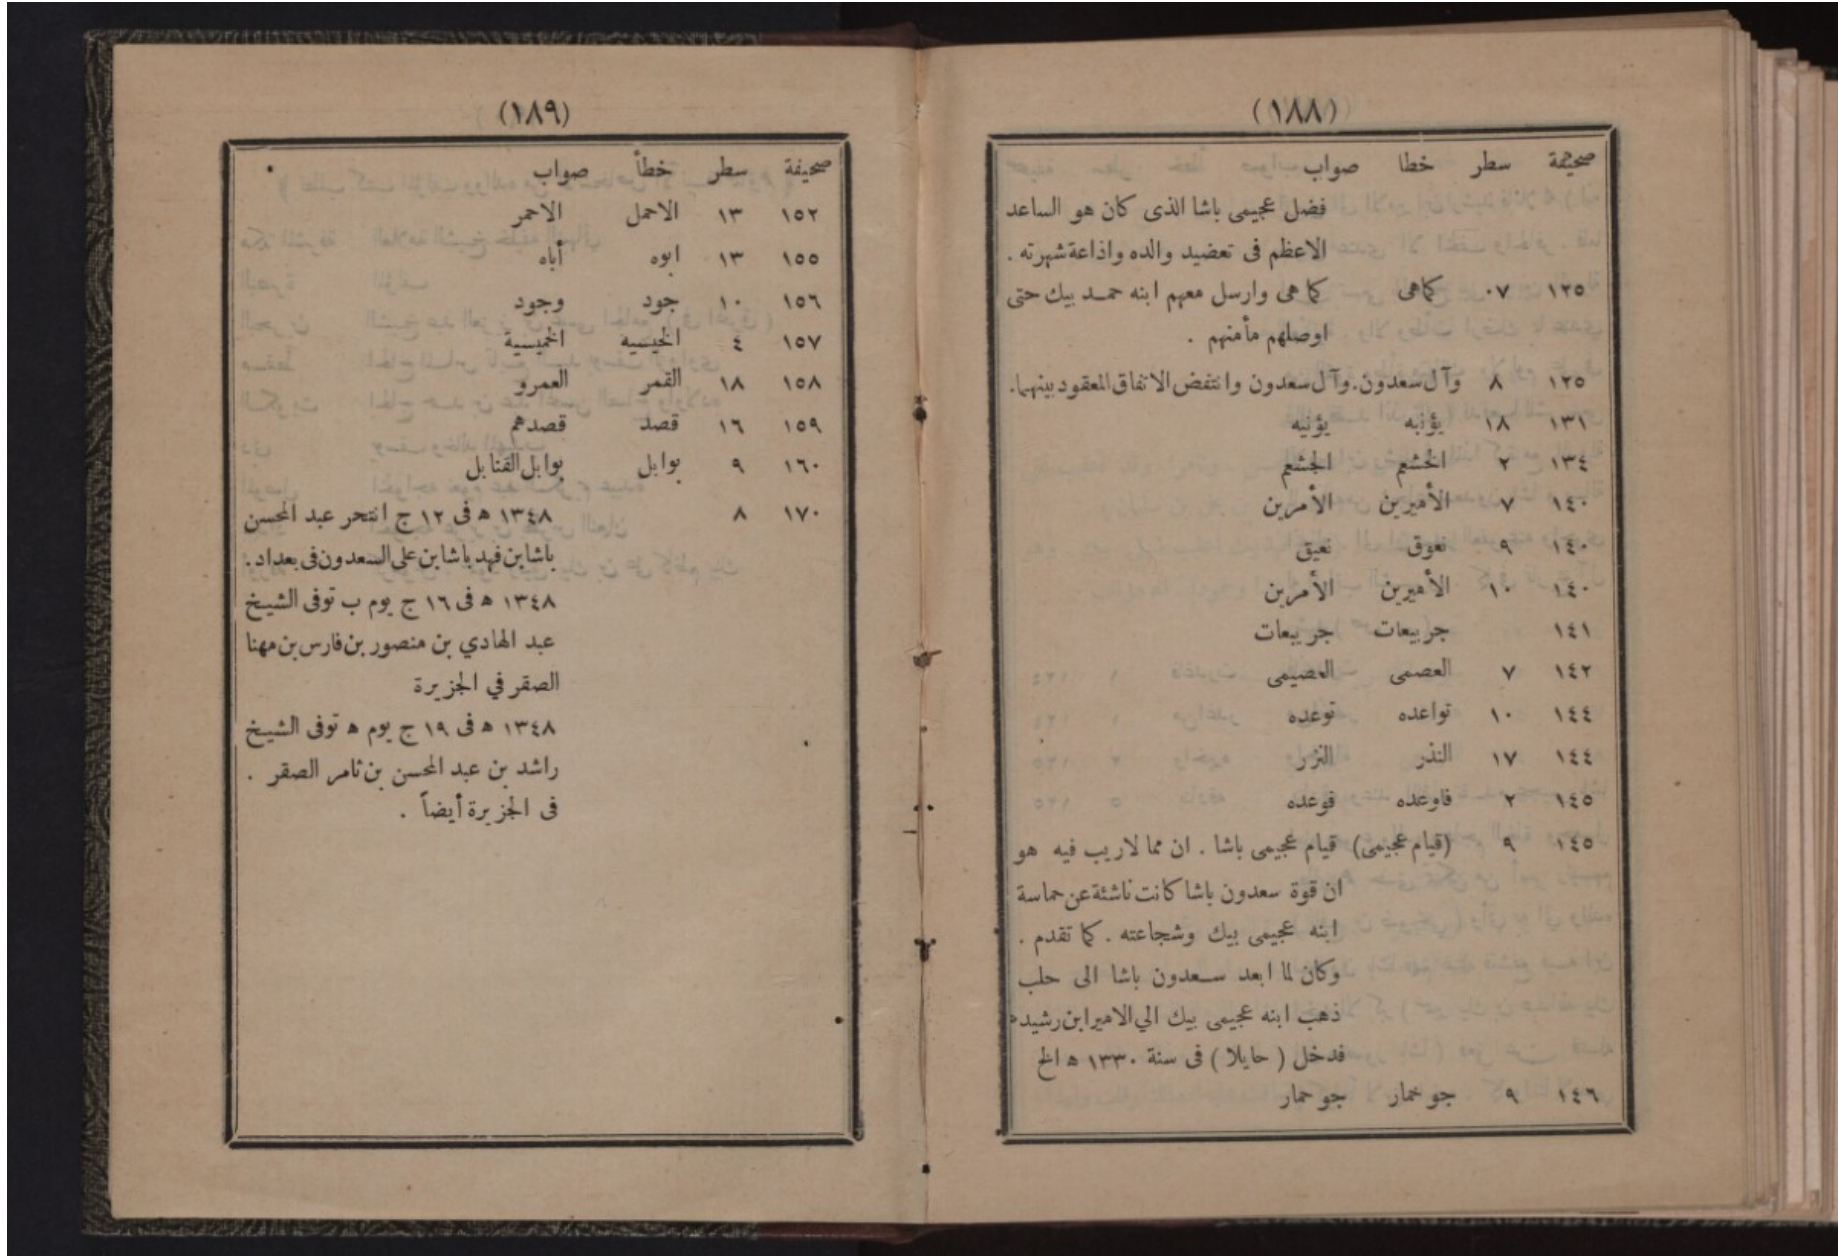 (١٨٨)
صحيفة سطر خطا صواب
فضل عجيمى باشا الذى كان هو الساعد
الاعظم فى تعضيد والده واذاعة شهرته .
١٢٥ ٠٧ كماهى كما هى وارسل معهم ابنه حمد بيك حتى
اوصلهم مأمنهم .
١٢٥ ٨ وآل سعدون. وآل سعدون وانتفض الاتفاق المعقود بينهما.
١٣١ ١٨ يؤنبه يؤنيه
١٣٤ ٢ الخشعم الجشعم
١٤٠ ٧ الأميرين الأمرين
١٤٠ ٩ نعوق نعيق
١٤٠ ١٠ الأميرين الأمرين
١٤١ جربيعات جريبعات
١٤٢ ٧ العصمى العصيمى
١٤٤ ١٠ تواعده توعده
١٤٤ ١٧ النذر النزر
١٤٥ ٢ فاوعده فوعده
١٤٥ ٩ (قيام عجيمى) قيام عجيمى باشا . ان مما لاريب فيه هو
ان قوة سعدون باشا كانت ناشئة عن حماسة
ابنه عجيمى بيك وشجاعته . كما تقدم .
وكان لما ابعد سعدون باشا الى حلب
ذهب ابنه عجيمى بيك الي الامير ابن رشيد
فدخل ( حايلا ) فى سنة ١٣٣٠ ه الخ
١٤٦ ٩ جو خمار جو حمار
(١٨٩)
صحيفة سطر خطأ صواب
١٥٢ ١٣ الاحمل الاحمر
١٥٥ ١٣ ابوه أباه
١٥٦ ١٠ جود وجود
١٥٧ ٤ الخيسيه الخميسية
١٥٨ ١٨ القمر العمرو
١٥٩ ١٦ قصد قصدهم
١٦٠ ٩ بوابل بوابل القنابل
١٧٠ ٨ ١٣٤٨ ه فى ١٢ ج انتحر عبد المحسن
باشا بن فهد باشا بن على السعدون فى بعداد .
١٣٤٨ ه فى ١٦ ج يوم ب توفى الشيخ
عبد الهادي بن منصور بن فارس بن مهنا
الصقر في الجزيرة
١٣٤٨ ه فى ١٩ ج يوم ه توفى الشيخ
راشد بن عبد المحسن بن ثامر الصقر .
فى الجزيرة أيضاً .